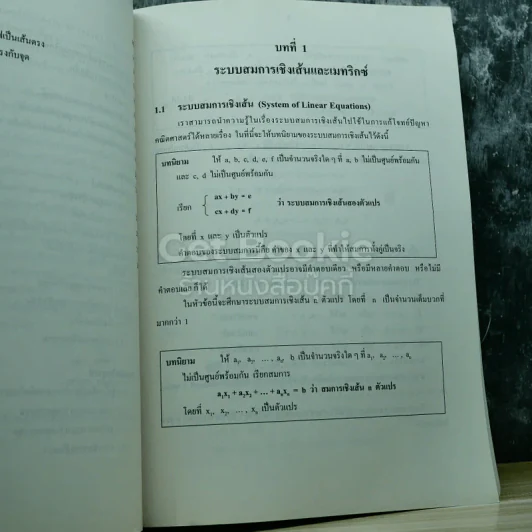 เป็นเส้นตรง
รงกับจุด
บทที่ 1
ระบบสมการเชิงเส้นและเมทริกซ์
1.1 ระบบสมการเชิงเส้น (System of Linear Equations)
เราสามารถนำความรู้ในเรื่องระบบสมการเชิงเส้นไปใช้ในการแก้โจทย์ปัญหา
คณิตศาสตร์ได้หลายเรื่อง ในที่นี้จะให้บทนิยามของระบบสมการเชิงเส้นไว้ดังนี้
บทนิยาม ให้ a, b, c, d, e, f เป็นจำนวนจริงใด ๆ ที่ a, b ไม่เป็นศูนย์พร้อมกัน
และ c, d ไม่เป็นศูนย์พร้อมกัน
เรียก { ax + by = e
cx + dy = f ว่า ระบบสมการเชิงเส้นสองตัวแปร
โดยที่ x และ y เป็นตัวแปร
คำตอบของระบบสมการนี้คือ ค่าของ x และ y ที่ทำให้สมการทั้งคู่เป็นจริง
Get Bookie
ร้านหนังสือบุ๊คกี้
ระบบสมการเชิงเส้นสองตัวแปรอาจมีคำตอบเดียว หรือมีหลายคำตอบ หรือไม่มี
คำตอบเลยก็ได้
ในหัวข้อนี้จะศึกษาระบบสมการเชิงเส้น n ตัวแปร โดยที่ n เป็นจำนวนเต็มบวกที่
มากกว่า 1
บทนิยาม ให้ a₁, a₂, ... , aₙ, b เป็นจำนวนจริงใด ๆ ที่ a₁, a₂, ... , aₙ
ไม่เป็นศูนย์พร้อมกัน เรียกสมการ
a₁x₁ + a₂x₂ + ... + aₙxₙ = b ว่า สมการเชิงเส้น n ตัวแปร
โดยที่ x₁, x₂, ... , xₙ เป็นตัวแปร